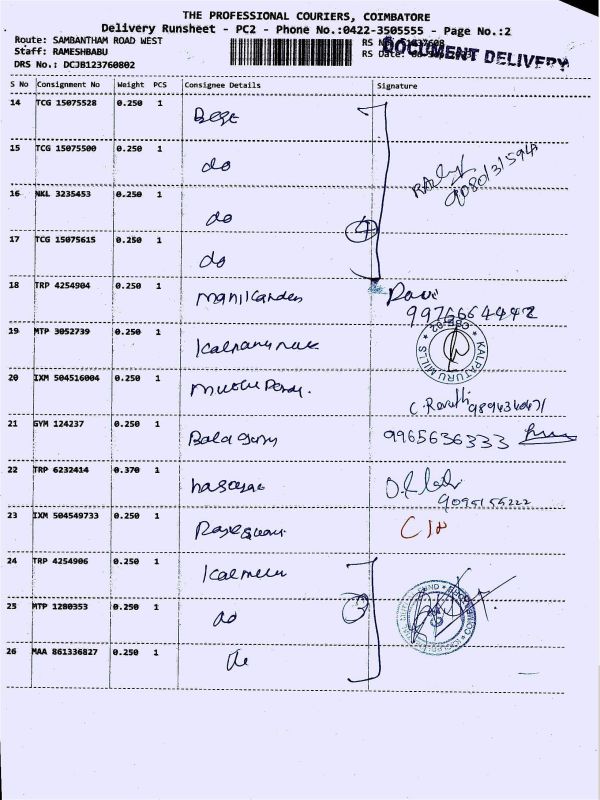 THE PROFESSIONAL COURIERS, COIMBATORE
Delivery Runsheet - PC2 - Phone No.:0422-3505555 - Page No.:2
Route: SAMBANTHAM ROAD WEST
Staff: RAMESHBABU
DRS No.: DCJB123760802
RS
RS Date:
DOCUMENT DELIVERY
S No Consignment No Weight PCS Consignee Details Signature
14 TCG 15075528 0.250 1
15 TCG 15075500 0.250 1 do
16 NKL 3235453 0.250 1 do
4
17 TCG 15075615 0.250 1 do
18 TRP 4254904 0.250 1 Manikanden
9976664442
19 MTP 3052739 0.250 1
KALPATURU MILLS
20 IXM 504516004 0.250 1
C. Revathi
21 GYM 124237 0.250 1 Bala guru 9965636333
22 TRP 6232414 0.370 1
9095155222
23 IXM 504549733 0.250 1
24 TRP 4254906 0.250 1
25 MTP 1280353 0.250 1 do
3
26 MAA 861336827 0.250 1